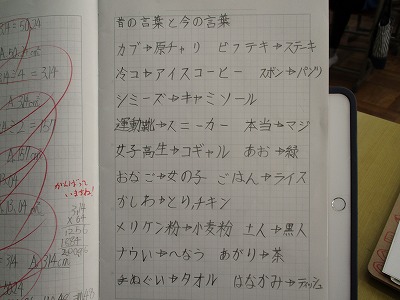 昔の言葉と今の言葉
カブ→原チャリ ビフテキ→ステーキ
冷コ→アイスコーヒー ズボン→パンツ
シミーズ→キャミソール
運動靴→スニーカー 本当→マジ
女子高生→コギャル あお→緑
おなご→女の子 ごはん→ライス
かしわ→とり,チキン
メリケン粉→小麦粉 土人→黒人
ナウい→へなう あがり→茶
手ぬぐい→タオル はながみ→ティッシュ
がんばって
いますね!
314
× 64
1256
A 314cm